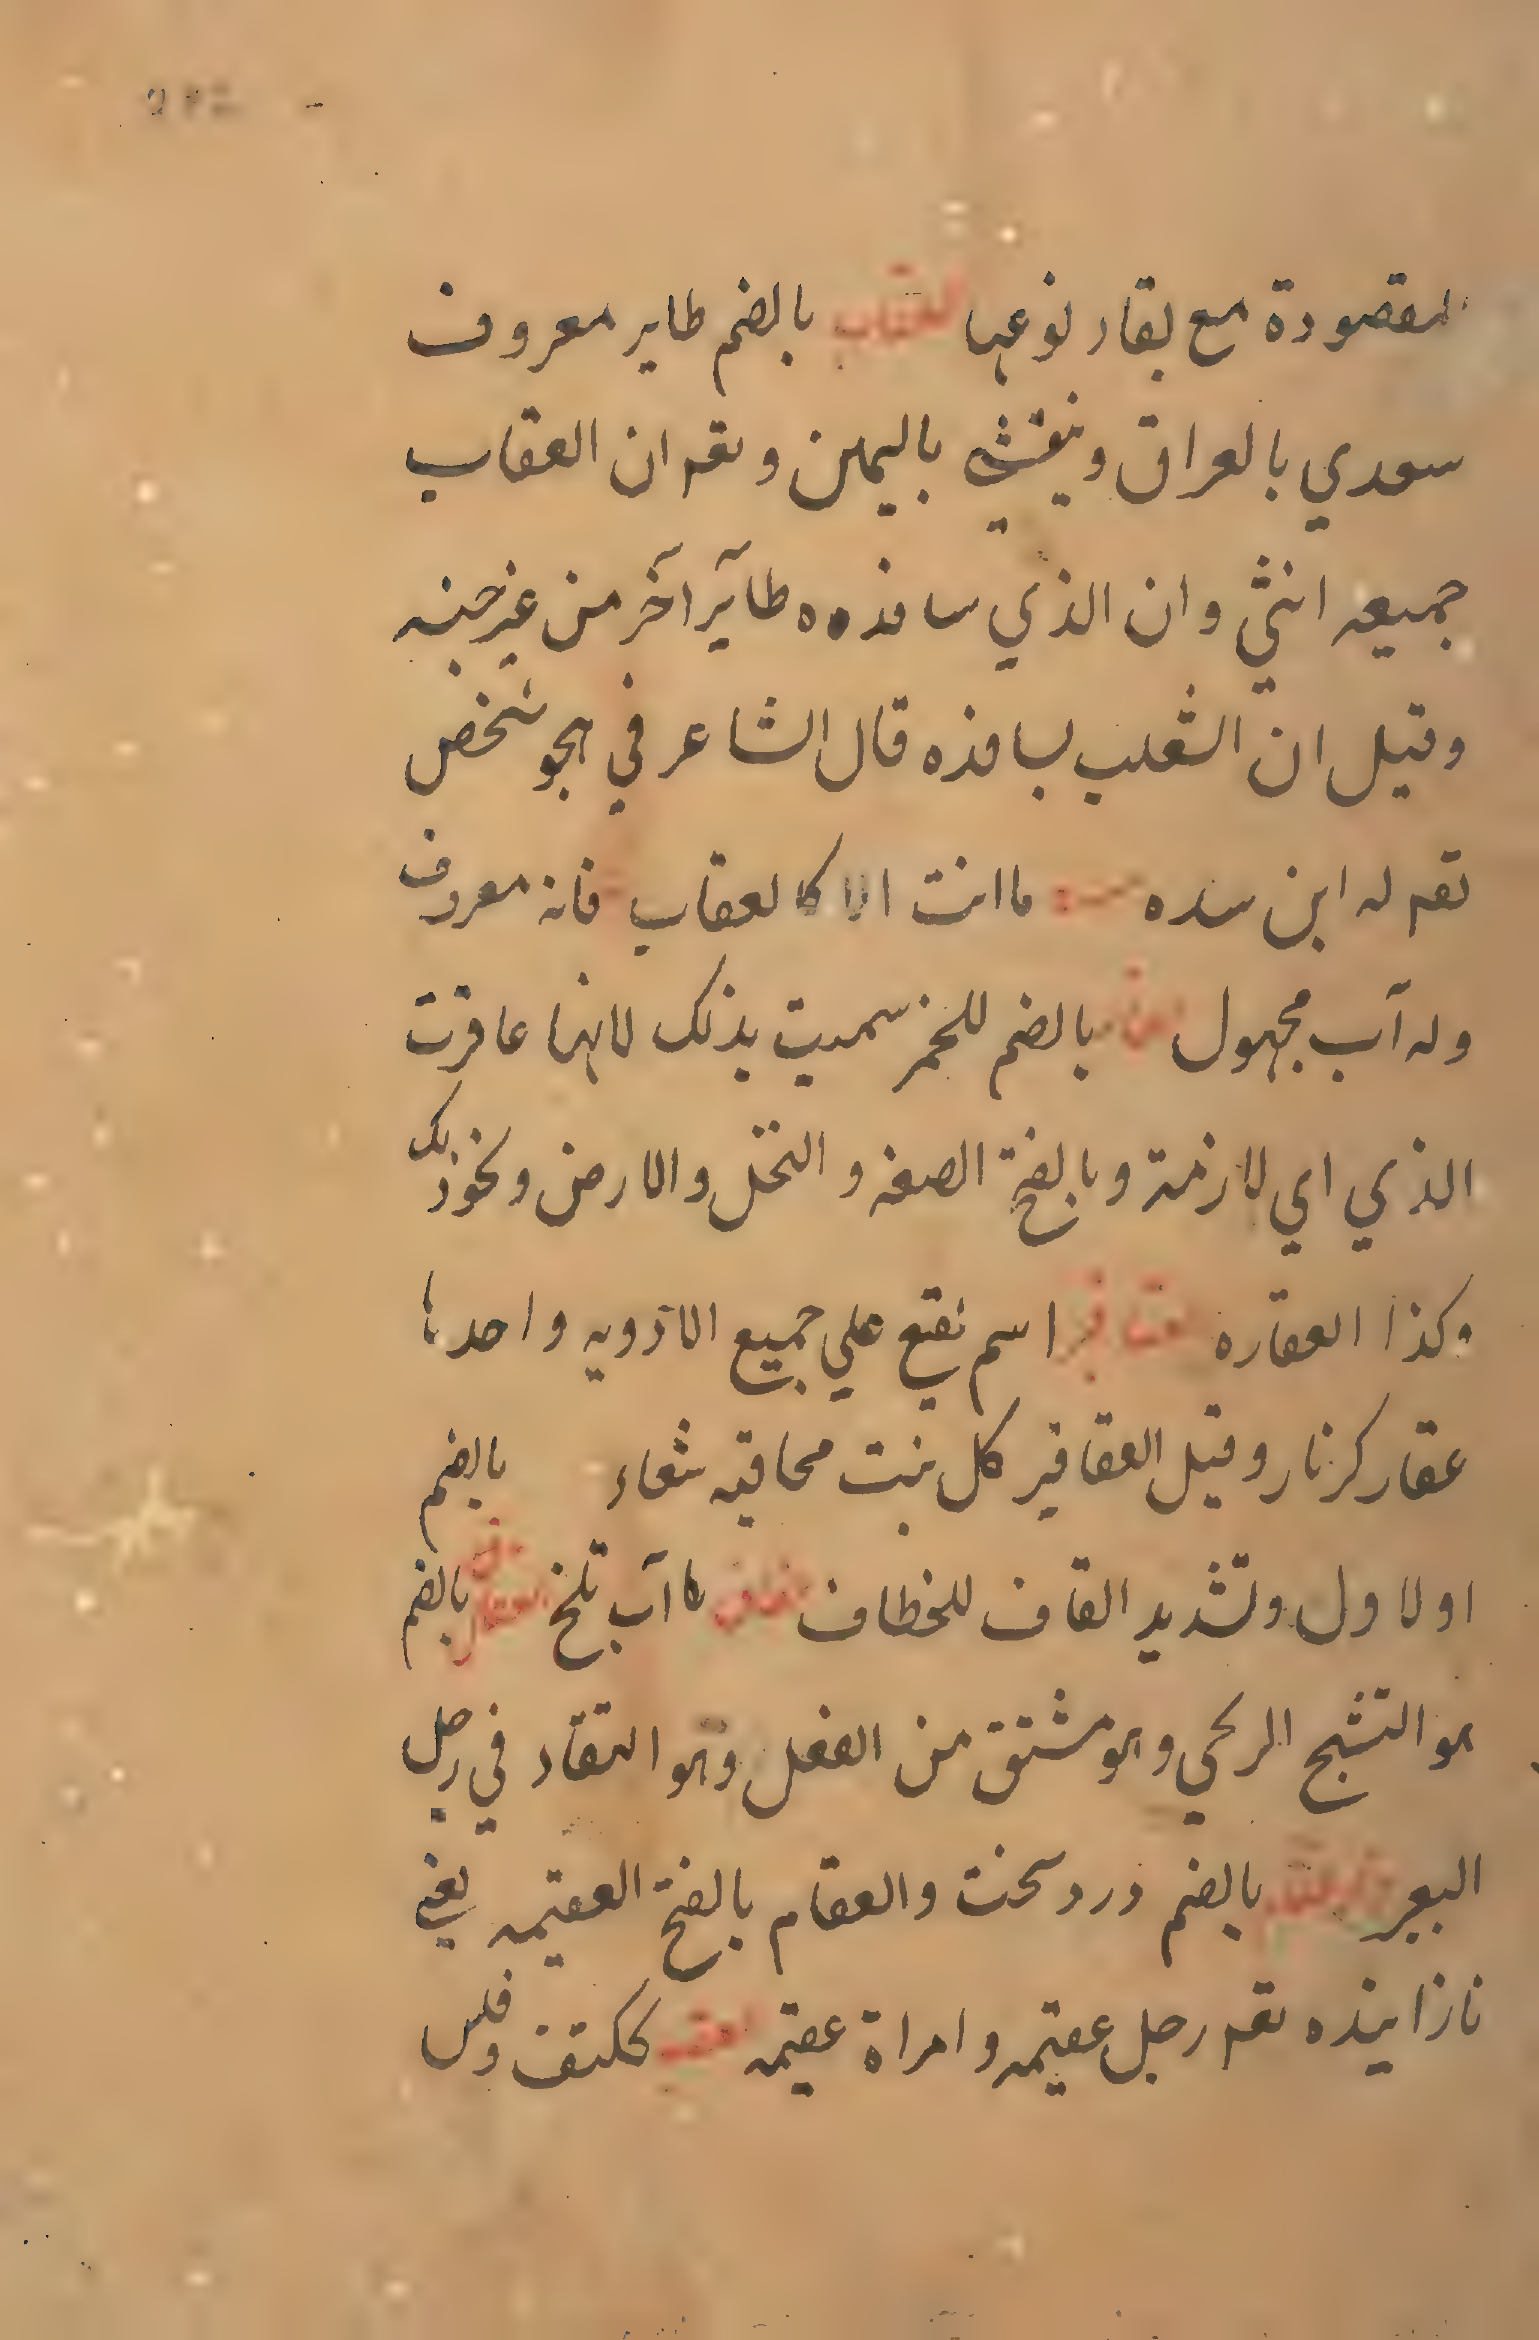 المقصودة مع بقار نوعها العقاب بالضم طاير معروف
سعدي بالعراق وينقشي باليمن ونقم ان العقاب
جميعه انثي وان الذي سافذه طآير آخر من غير جنسه
وقيل انّ الثعلب يسافذه قال الشاعر في هجو شخص
نقم له ابن سده ما انت الا كالعقاب فانه معروف
وله آب مجهول بالضم للخمر سميت بذلك لانها عاقرت
الذي اي لازمة وبالفتح الصغه والنخل والارض ونحو ذلك
وكذا العقاره عقاقير اسم نقع علي جميع الادويه واحدها
عقار كزنار وقيل العقاقير كل نبت محاقيه شعاء بالضم
اولاول وتشديد القاف للخطاف كاآب تلخ بالضم
هو التشبح الرحي وهو مشتق من العقل وهو التقاد في رجل
البعير بالضم درد سخت والعقام بالفتح العقيمه يعني
نازاينده نقم رجل عقيمه وامراة عقيمه ككتف وفلس